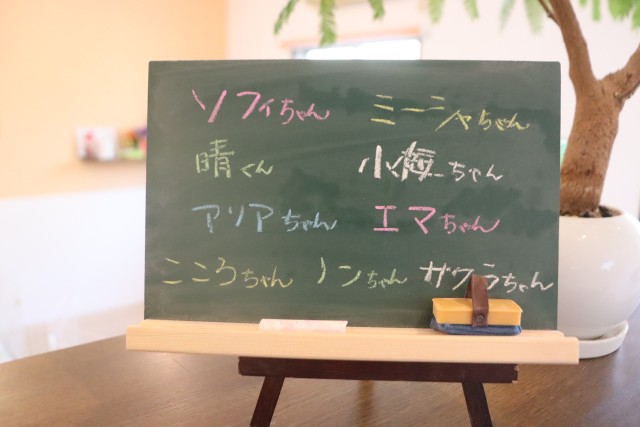 ソフィちゃん ミーシャちゃん
晴くん 小梅ちゃん
アリアちゃん エマちゃん
こころちゃん ノンちゃん サクラちゃん